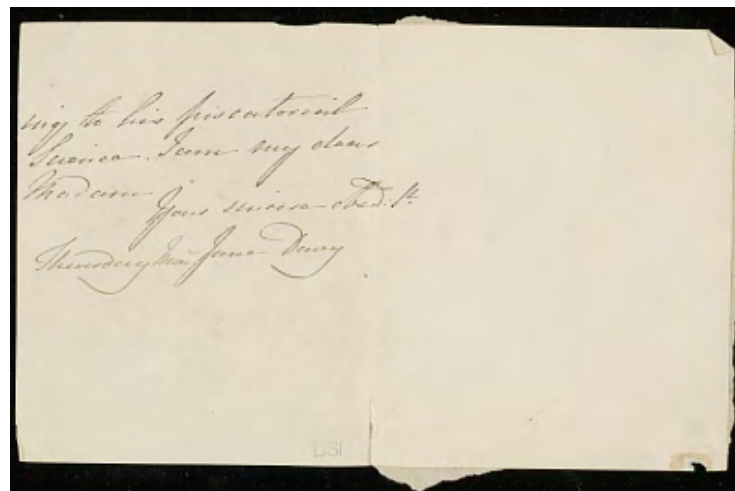 ing to his piscatorial
Science. I am my dear
Madam
Your sincere obed. St.
Thursday Mor Jane Davy
DSI